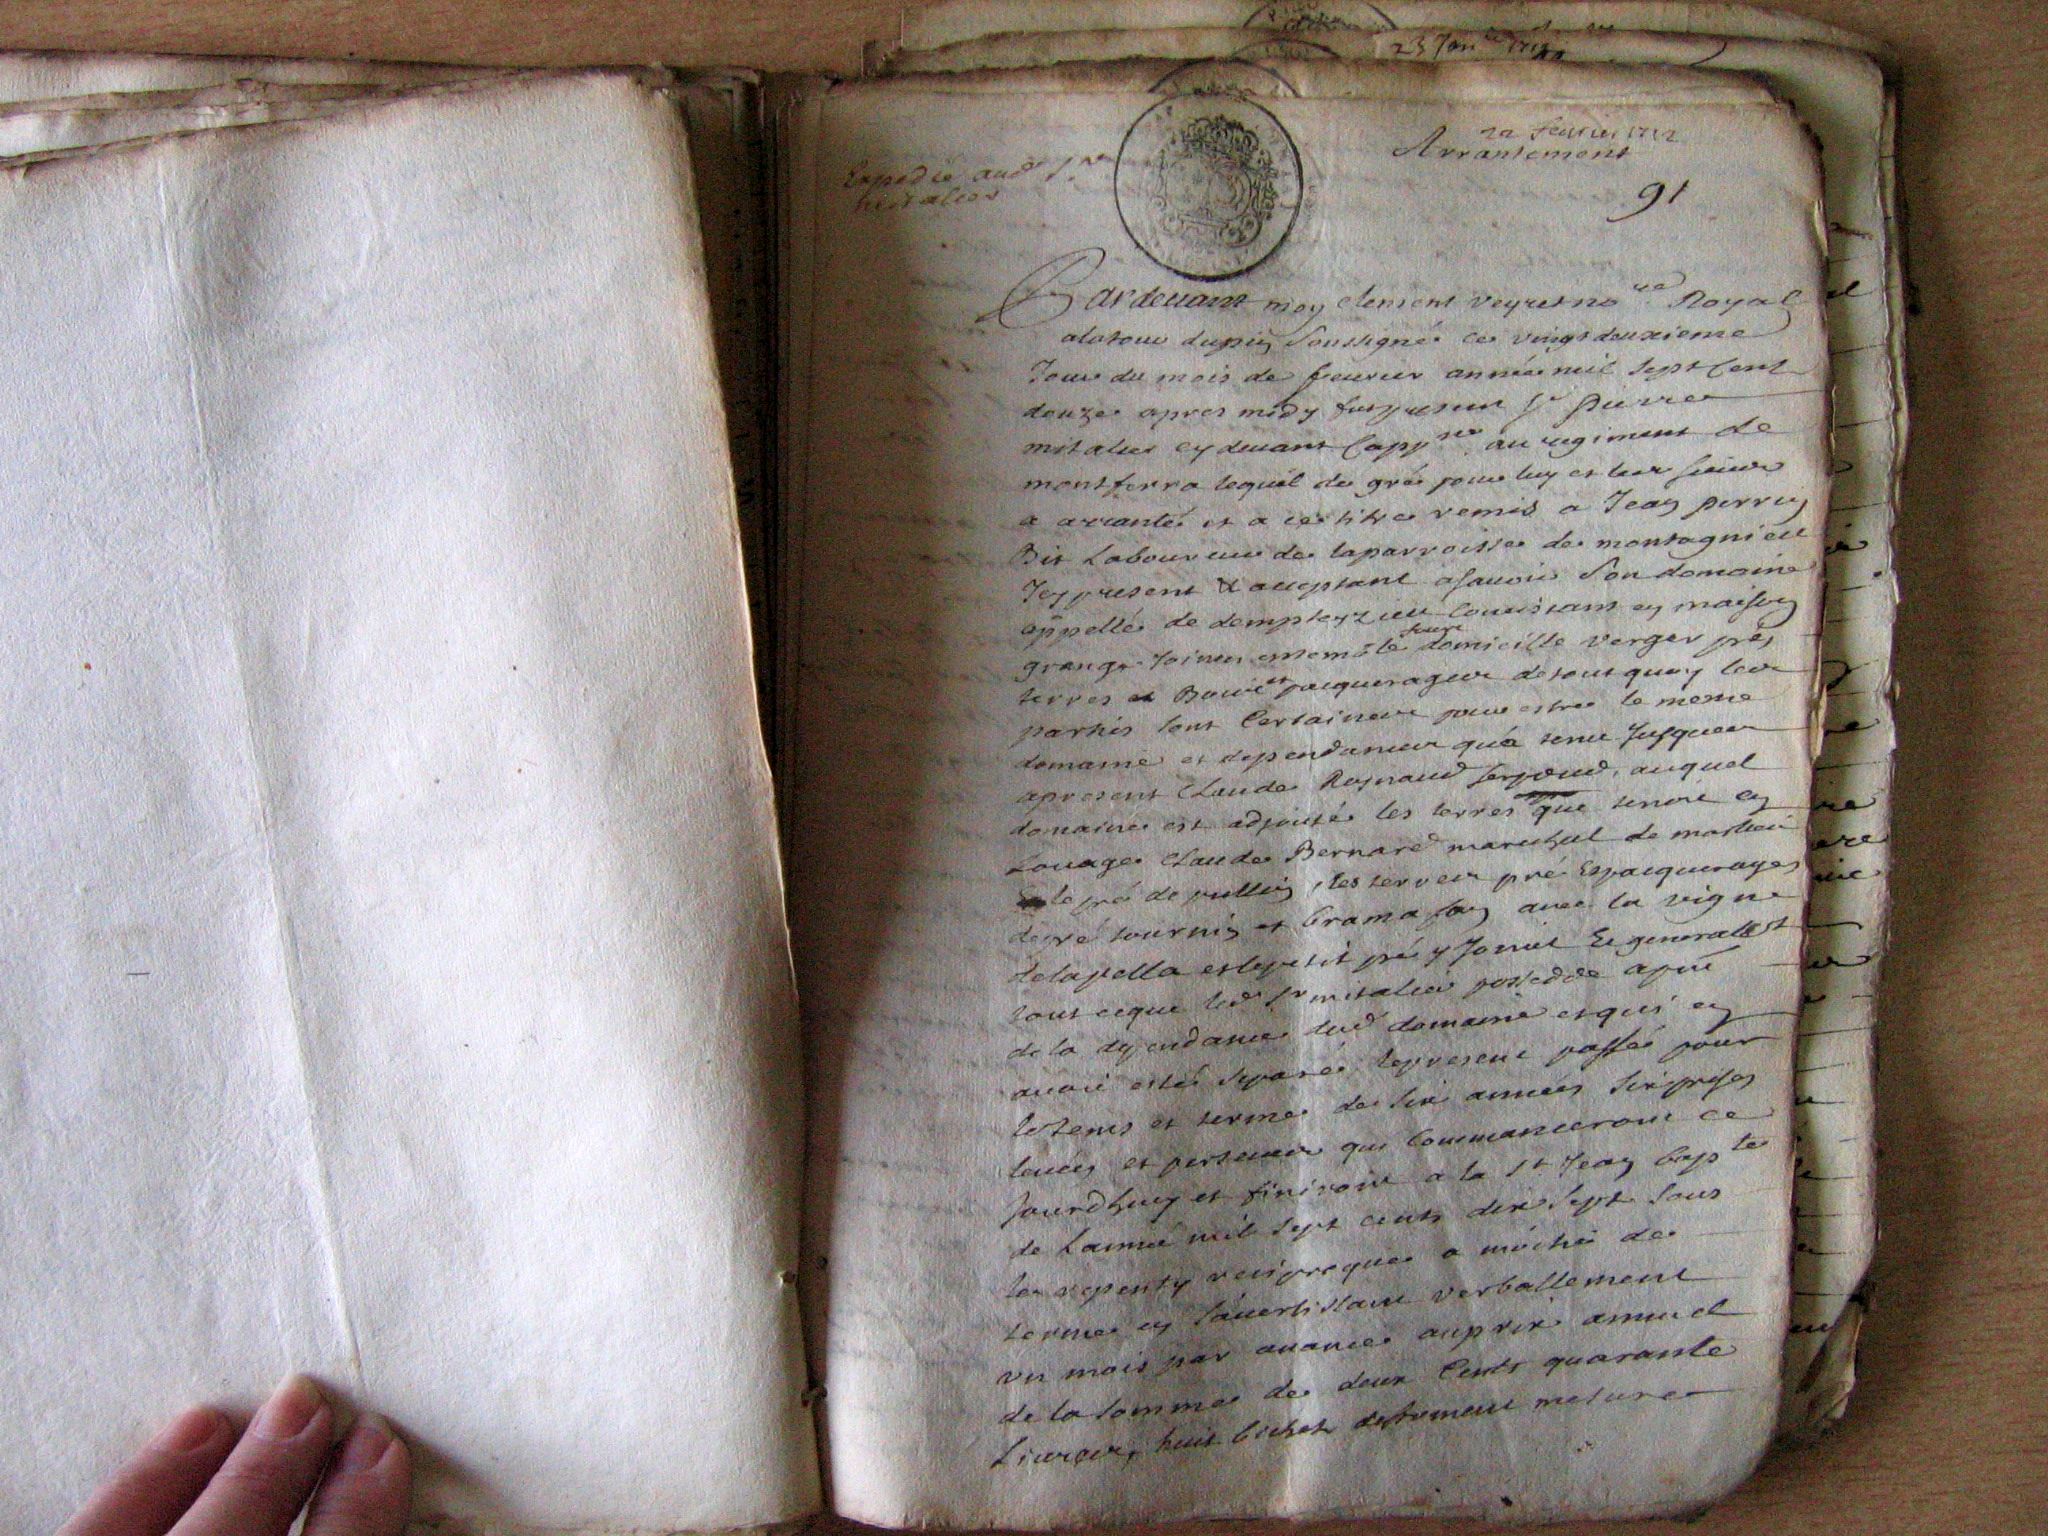 23 Jan
22 feurier 1712
Arrantement
Expedié aud Sr
mitalier
91
Pardeuant moy clement veyret no.re Royal
alatour dupin soussigné ce vingt deuxieme
Jour du mois de feurier année mil sept cent
douze apres midy fut present Sr pierre
mitalier cy deuant Capp.ne au regiment de
montferra lequel de gré pour luy et les siens
a arranté et a ce titre remis a Jean perrin
Bit Laboureur de la parroisse de montagnieu
Icy present & acceptant asauoir son domaine
appellé de dempteyzieu Consistant en maison
grange Joints ensemble domicille verger prés
terres et Bois et pacquerages de tout quoy les
parties sont Certaines pour estre le meme
domaine et dependances qu'a tenu Jusques
apresent Claude Reynaud auquel
domaine est adjouté les terres que tenoit en
Louage Claude Bernard marechal de
le pré de pullin, les terres pré Et pacquerages
de pré tournin et bramafan auec la vigne
delapella et le petit pré y Joint Et generallemt
tout ceque led Sr mitalier possedde
de la dependance dud domaine et qui en
auoit esté separé, lepresent passé pour
le tems et terme de six années six prises
leuées et perceues qui Commanceront ce
Jourdhuy et finiront a la St Jean bap.te
de Lannée mil sept cents dix sept sous
le repenty reciproque a moitié de
terme en s'auertissant verballement
un mois par auance au prix annuel
de la somme de deux Cents quarante
Liures, huit bichets defroment mesure